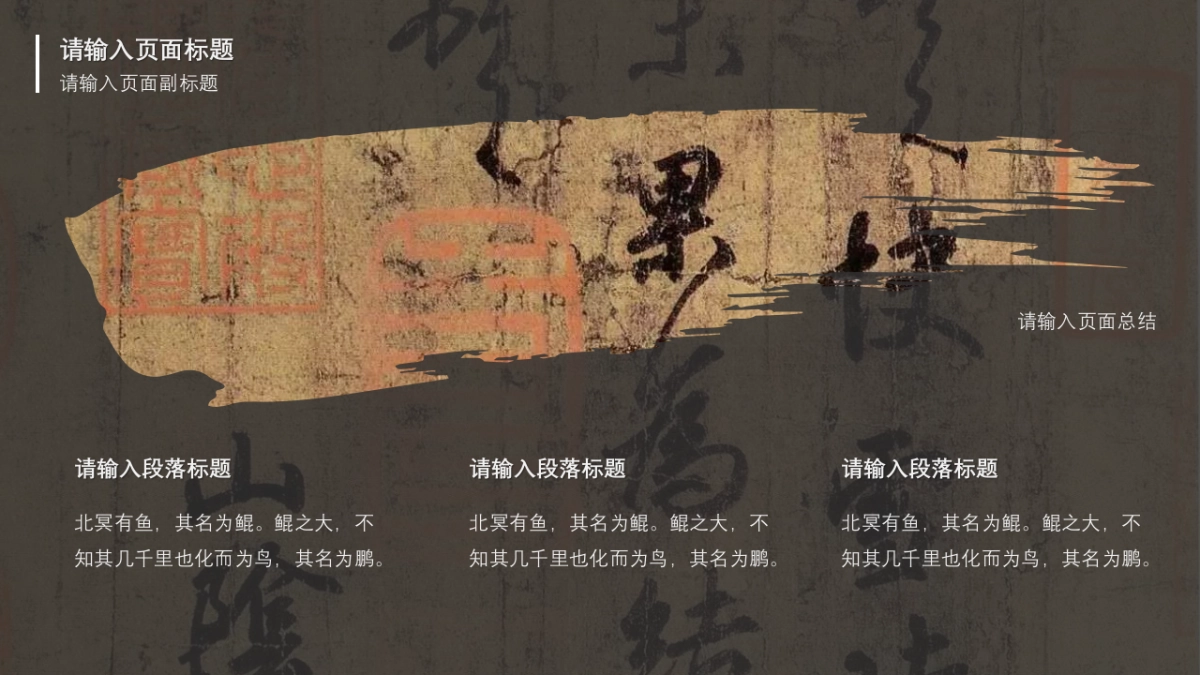 请输入页面标题
请输入页面副标题
快雪
未果為結
山陰
请输入页面总结
请输入段落标题
北冥有鱼，其名为鲲。鲲之大，不
知其几千里也化而为鸟，其名为鹏。
请输入段落标题
北冥有鱼，其名为鲲。鲲之大，不
知其几千里也化而为鸟，其名为鹏。
请输入段落标题
北冥有鱼，其名为鲲。鲲之大，不
知其几千里也化而为鸟，其名为鹏。